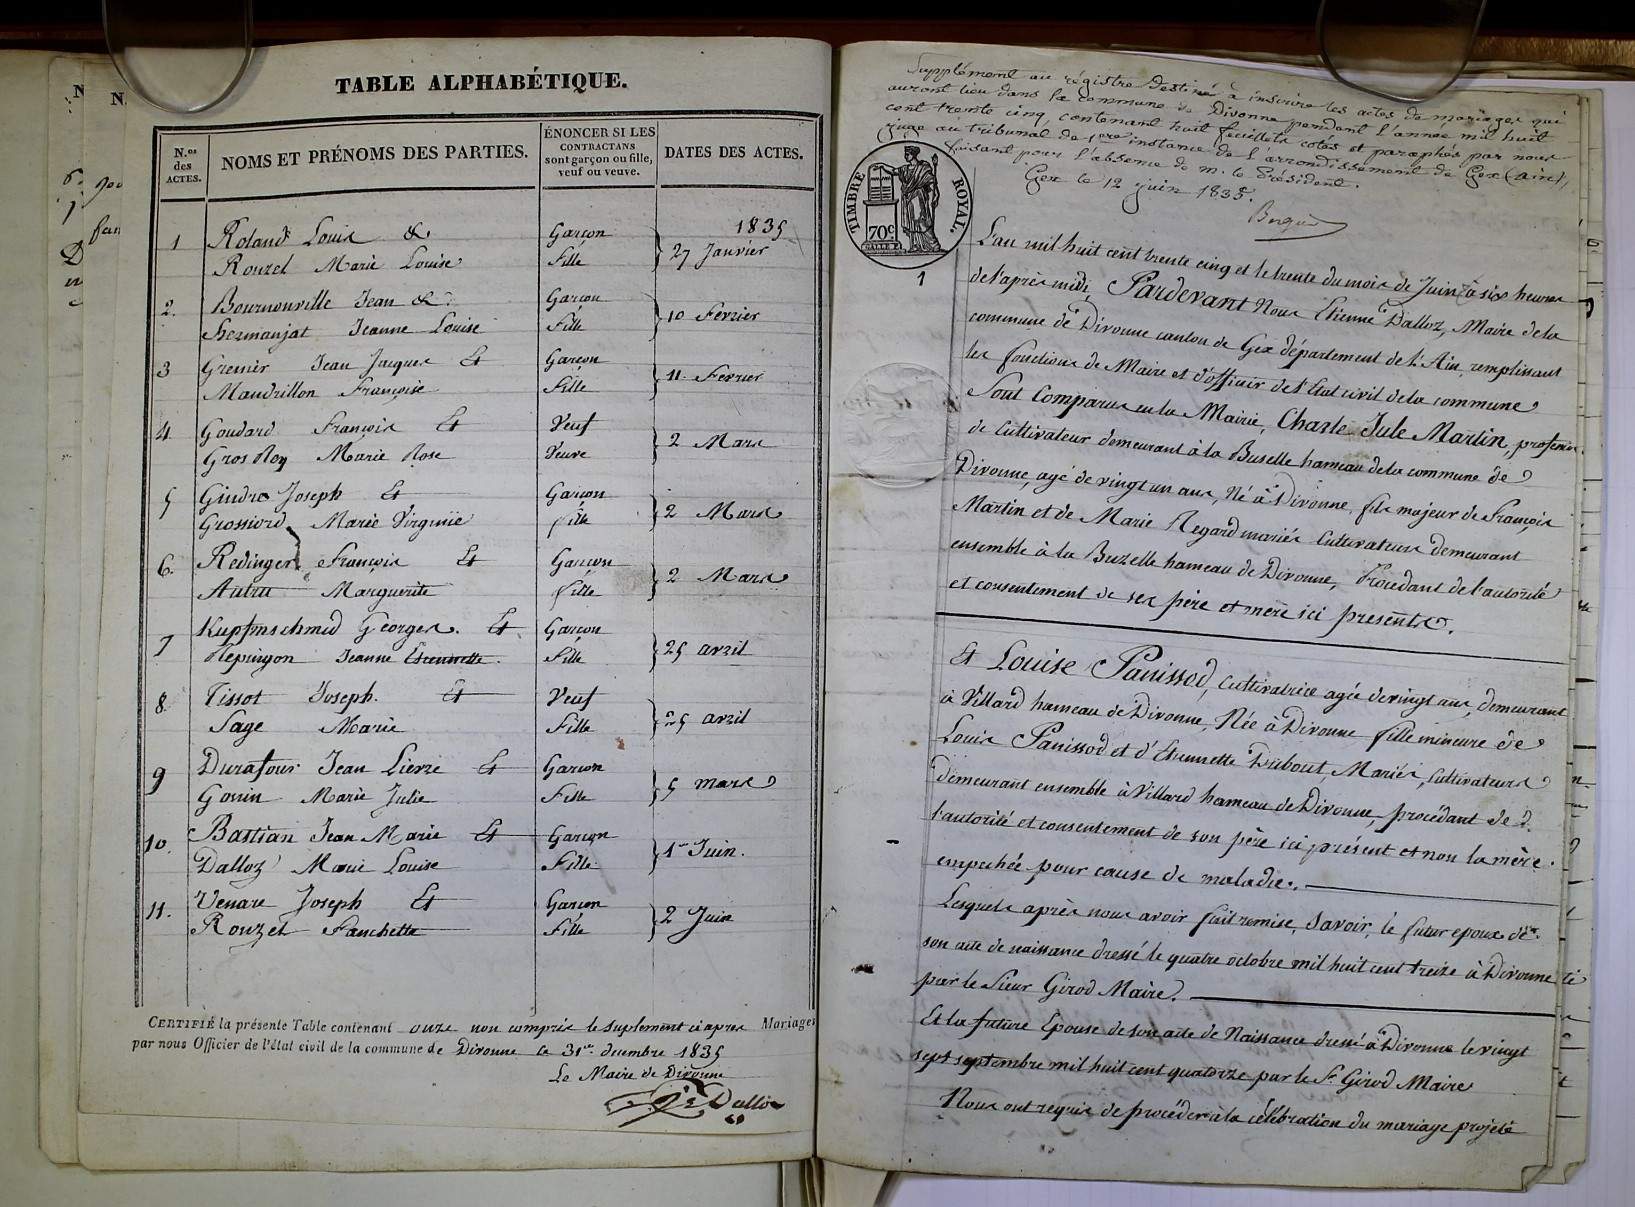 TABLE ALPHABÉTIQUE.
N.os des ACTES.
NOMS ET PRÉNOMS DES PARTIES.
ÉNONCER SI LES CONTRACTANS sont garçon ou fille, veuf ou veuve.
DATES DES ACTES.
1835
1 Roland Louis & Garçon
Rouzel Marie Louise Fille } 27 Janvier
2. Bournonville Jean & Garçon
hermanjat Jeanne Louise Fille } 10 Février
3 Grenier Jean Jacques Et Garçon
Maudrillon Françoise Fille } 11 Février
4. Goudard François Et Veuf
Gros Roy Marie Rose Veuve } 2 Mars
5 Gindre Joseph Et Garçon
Grossiord Marie Virginie fille } 2 Mars
6. Redinger François Et Garçon
Marguerite fille } 2 Mars
7 Kupfmschmid Georges. Et Garçon
Repingon Jeanne Etiennette. Fille } 25 avril
8. Tissot Joseph. Et Veuf
Sage Marie Fille } 25 avril
9 Durafour Jean Pierre Et Garçon
Gonin Marie Julie Fille } 5 mars
10. Bastian Jean Marie Et Garçon
Dalloz Marie Louise Fille } 1er Juin.
11. Venare Joseph Et Garçon
Rouzel Fanchette Fille } 2 Juin
CERTIFIÉ la présente Table contenant onze non compris le suplement ci apres Mariages
par nous Officier de l'état civil de la commune de Divonne le 31 decembre 1835
Le Maire de Divonne
Dalloz
Supplément au régistre destiné à inscrire les actes de mariages qui
auront lieu dans la commune de Divonne pendant l'année mil huit
cent trente cinq, contenant huit feuillets cotés et paraphés par nous
juge au tribunal de 1ere instance de l'arrondissement de Gex (ain),
faisant pour l'absence de m. le Président.
Gex le 12 juin 1835.
TIMBRE ROYAL.
70c
1
L'an mil huit cent trente cinq et le trente du mois de Juin à six heures
de l'après midi, Pardevant Nous Etienne Dalloz, Maire de la
commune de Divonne canton de Gex département de l'Ain, remplissant
les fonctions de Maire et d'officier de l'Etat civil de la commune
Sont Comparus en la Mairie, Charle Jule Martin, profession
de Cultivateur demeurant à la Buselle hameau de la commune de
Divonne, agé de vingt un ans, Né à Divonne, fils majeur de François
Martin et de Marie Regard mariés Cultivateurs demeurant
ensemble à la Buzelle hameau de Divonne, Procédant de l'autorité
et consentement de ses père et mère ici présents.
Et Louise Panissod, Cultivatrice agée de vingt ans, demeurant
à Villard hameau de Divonne, Née à Divonne fille mineure de
Louis Panissod et d'Etiennette Dubout, Mariés, Cultivateurs
demeurant ensemble à Villard hameau de Divonne, procédant de
l'autorité et consentement de son père ici présent et non la mère
empechée pour cause de maladie.
Lesquels après nous avoir fait remise, Savoir, le futur epoux de
son acte de naissance dressé le quatre octobre mil huit cent treize à Divonne
par le Sieur Girod Maire.
Et la future Epouse de son acte de Naissance dressé à Divonne le vingt
sept septembre mil huit cent quatorze par le Sr Girod Maire
Nous ont requis de procéder à la célébration du mariage projeté